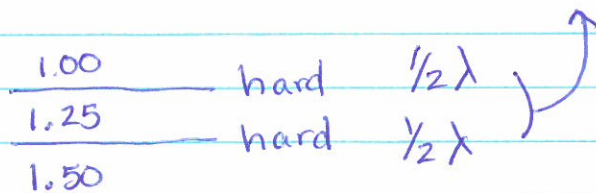 1.00
hard ½ λ
1.25
hard ½ λ
1.50